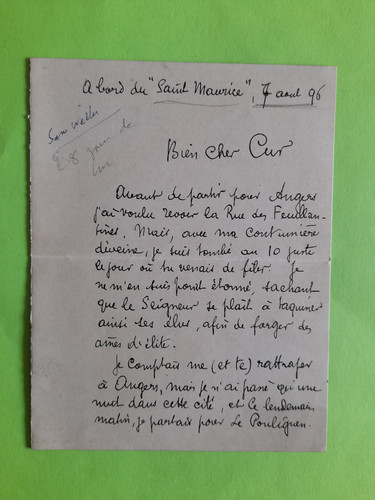 A bord du "Saint Maurice", 7 aout 96
Bien cher Cur
Avant de partir pour Angers
j'ai voulu revoir la Rue des Feuillan-
tines. Mais, avec ma coutumière
déveine, je suis tombé au 10 juste
le jour où tu venais de filer. Je
ne m'en suis point étonné, sachant
que le Seigneur se plaît à taquiner
ainsi ses élus, afin de forger des
âmes d'élite.
Je comptais me (et te) rattraper
à Angers, mais je n'ai passé qu'une
nuit dans cette cité, et le lendemain
matin, je partais pour Le Pouliguen.